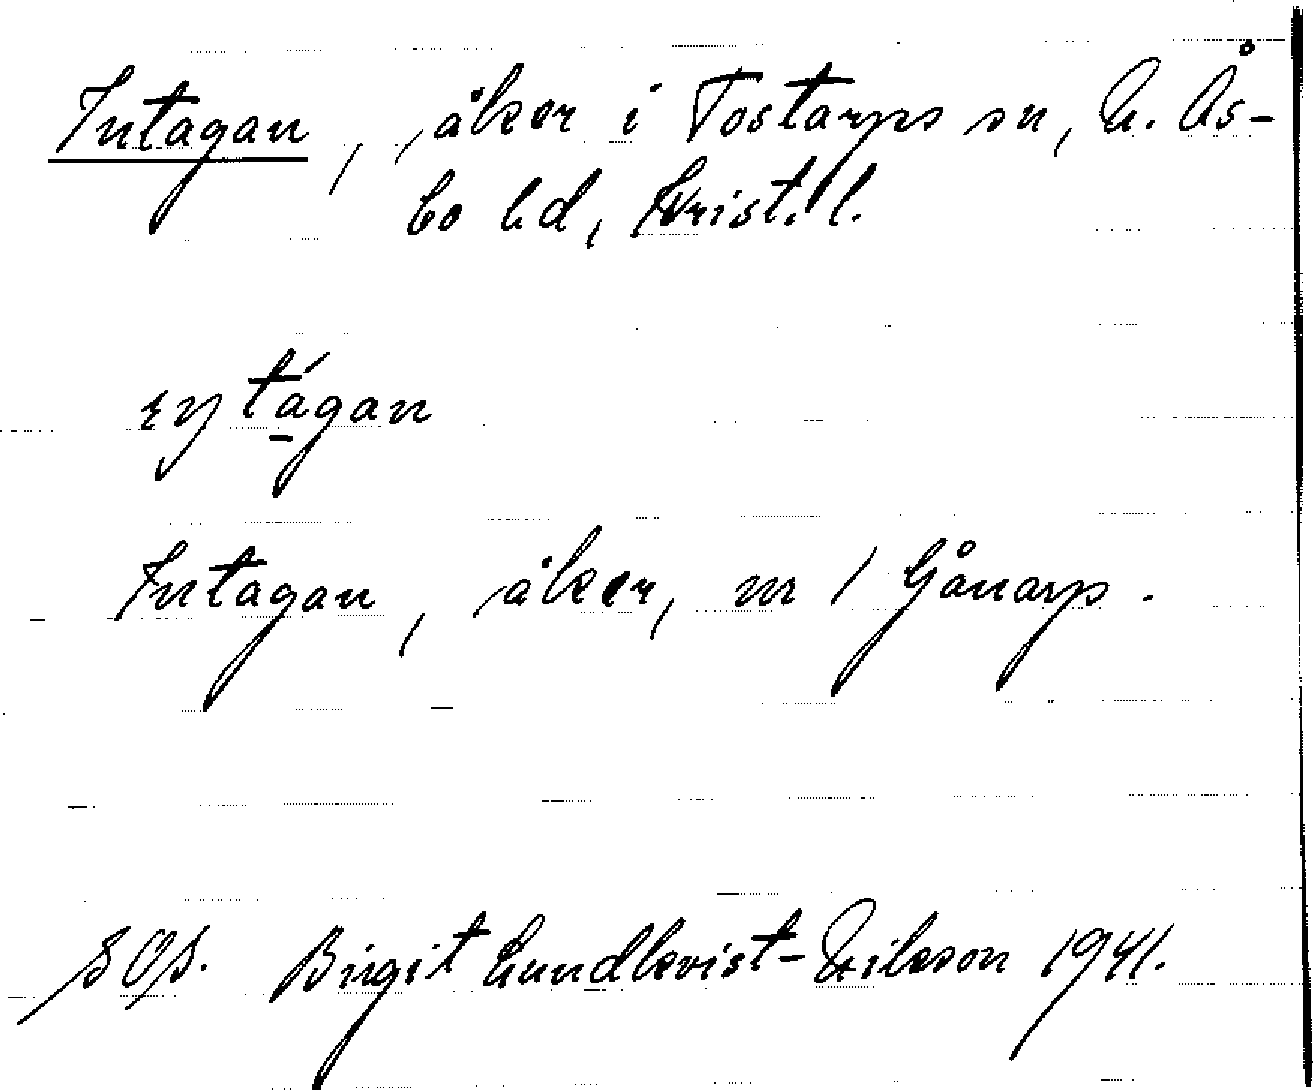 Intagan, åker i Tostarps sn, N. Ås-
bo hd, Krist. l.
Intagan, åker, nr 1 Gånarp.
SOA. Birgit Lundkvist-Nilsson 1941.